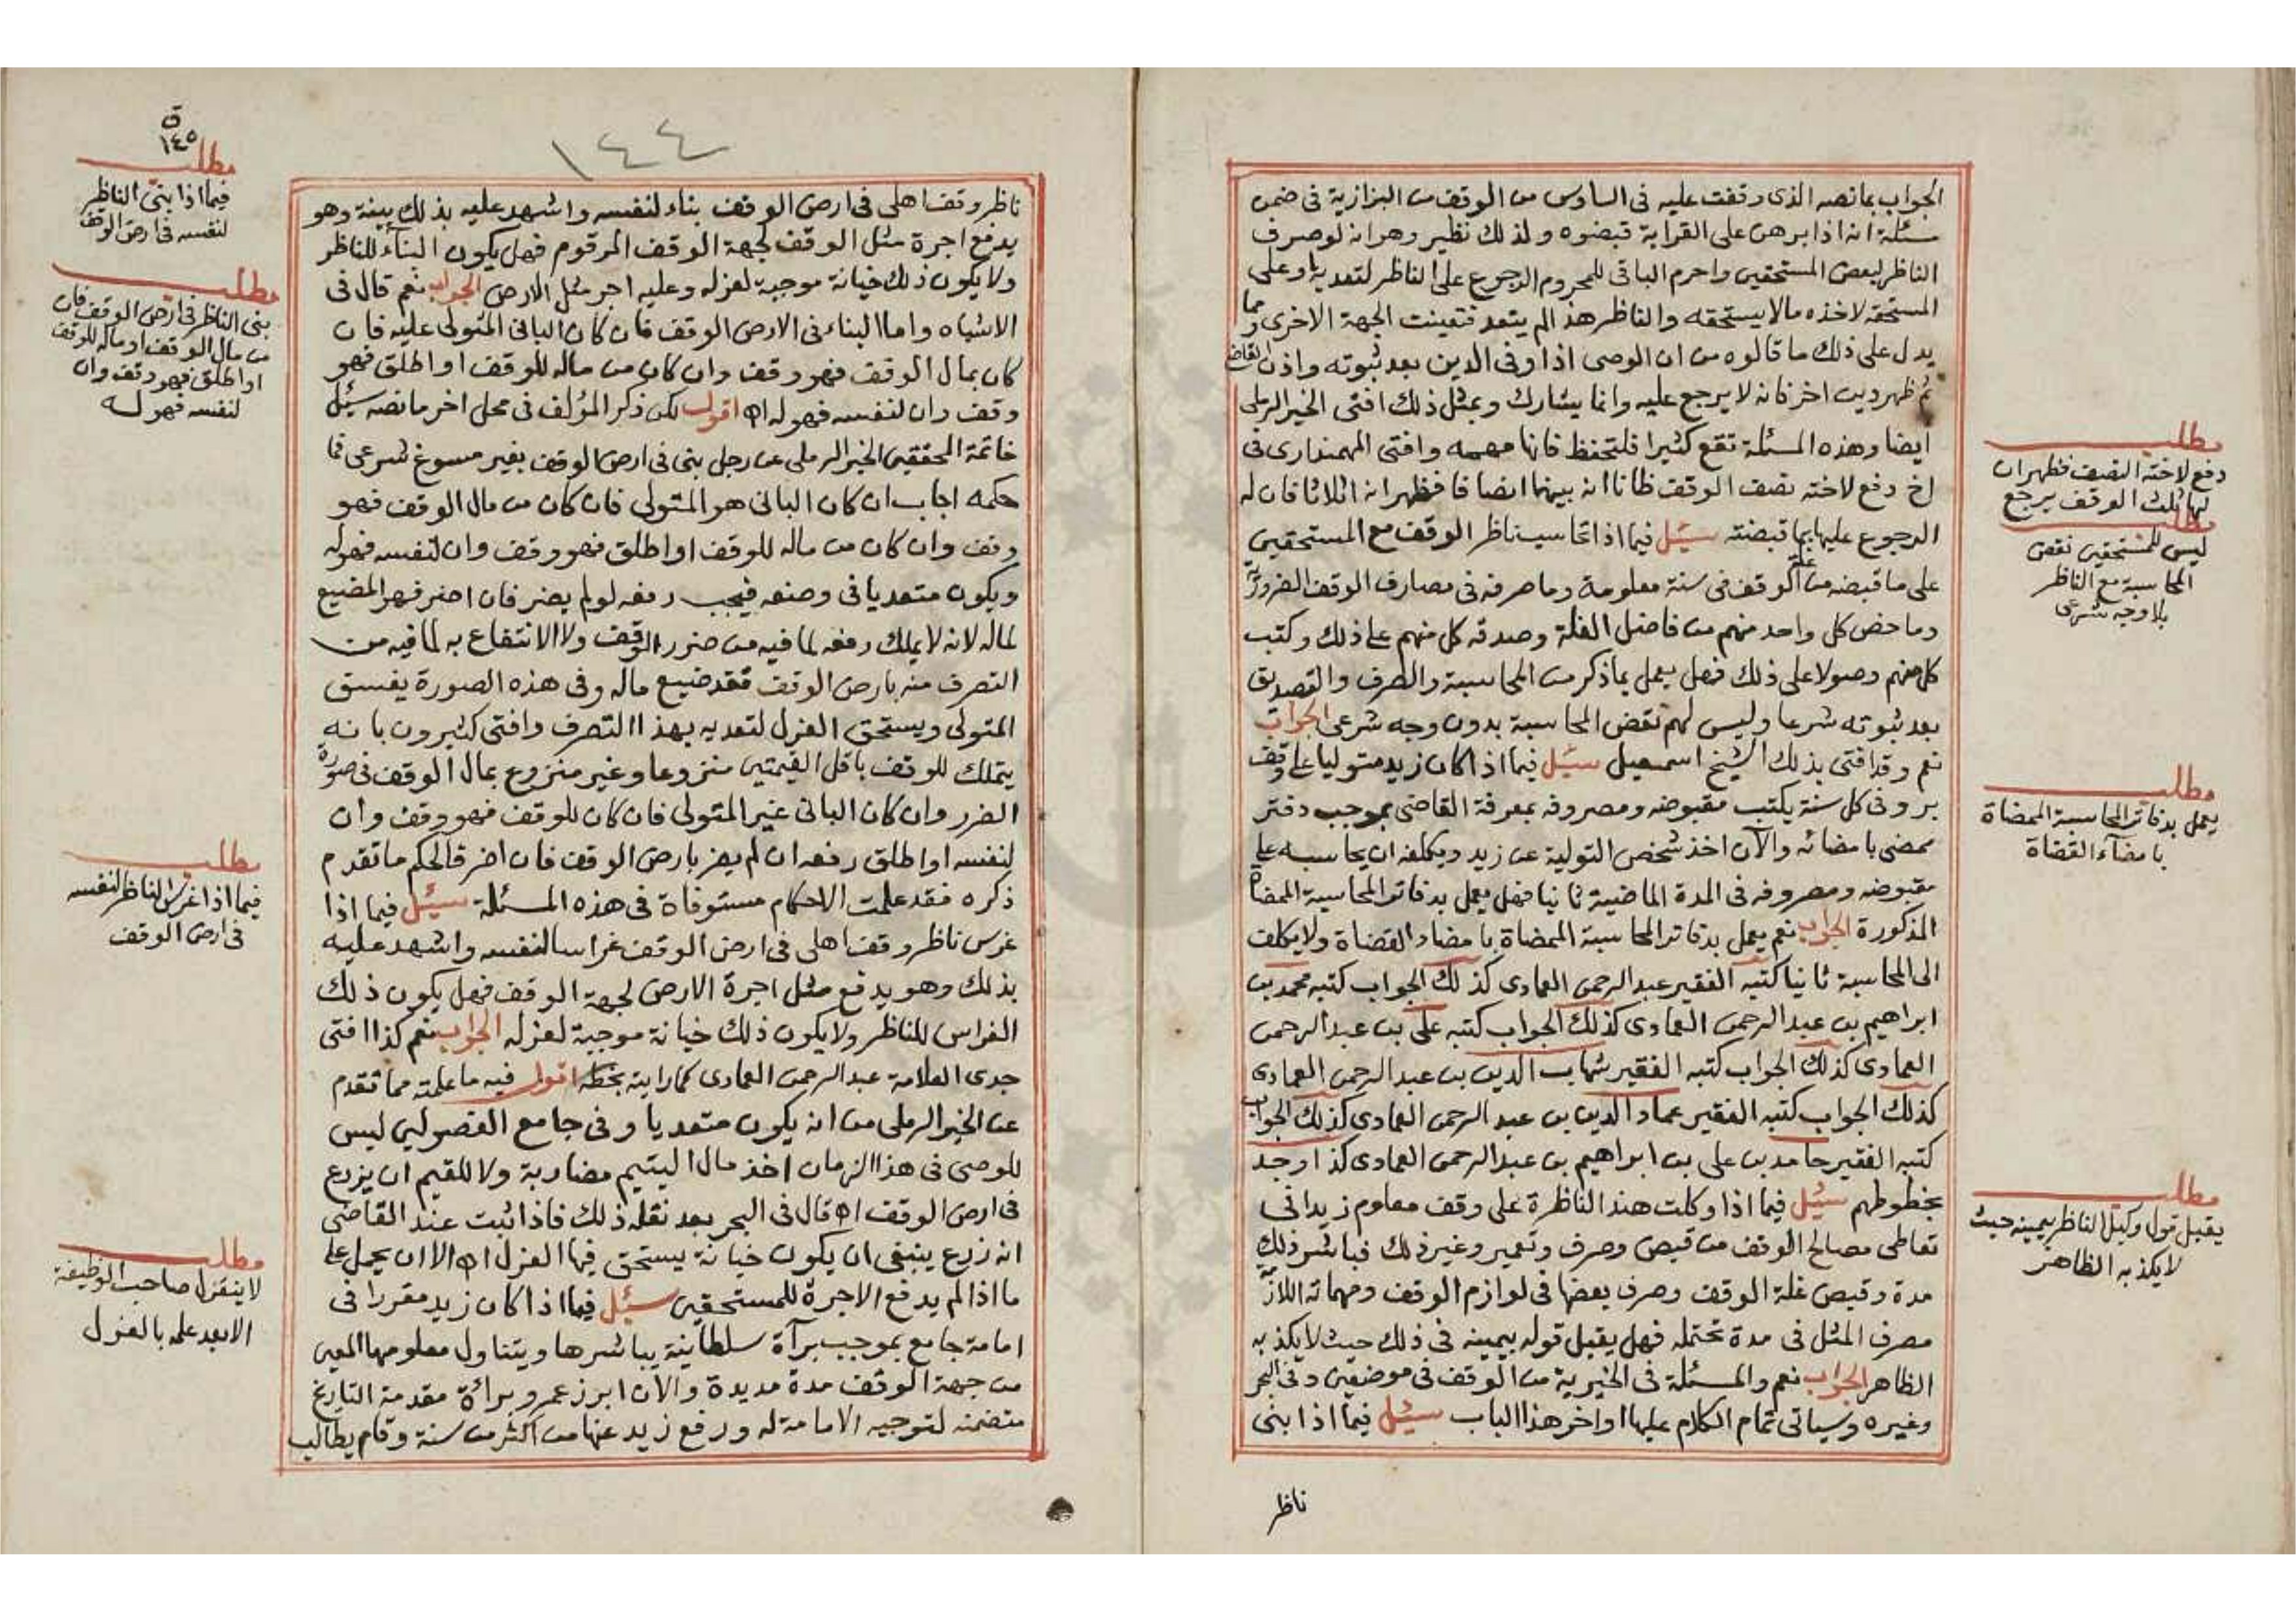 الجواب بما نصه الذى وقفت عليه فى السادس من الوقف من البزازية فى ضمن
مسئلة انه اذا برهن على القرابة قبضوه ولذلك نظير وهو انه لو صرف
الناظر لبعض المستحقين واحرم الباقى للمحروم الرجوع على الناظر لتعديه او على
المستحقه لاخذه مالا يستحقه والناظر هذا لم يتعد فتعينت الجهة الاخرى ومما
يدل على ذلك ما قالوه من ان الوصى اذا وفى الدين بعد ثبوته واذن القاضى
ثم ظهر دين اخر فانه لا يرجع عليه وانما يشارك وبمثل ذلك افتى الخير الرملى
ايضا وهذه المسئلة تقع كثيرا فلتحفظ فانها مهمه وافتى المهمندارى فى
اخ دفع لاخته نصف الوقف ظانا انه بينهما انصافا فظهر انه اثلاثا فان له
الرجوع عليها بما قبضته سئل فيما اذا تحاسب ناظر الوقف مع المستحقين
على ما قبضه من غلة الوقف فى سنة معلومة وما صرفه فى مصارف الوقف الضرورية
وما خص كل واحد منهم من فاضل الغلة وصدقه كل منهم على ذلك وكتب
كل منهم وصولا على ذلك فهل يعمل بما ذكر من المحاسبة والصرف والتصديق
بعد ثبوته شرعا وليس لهم نقض المحاسبة بدون وجه شرعى الجواب
نعم وقد افتى بذلك الشيخ اسمعيل سئل فيما اذا كان زيد متوليا على وقف
بر وفى كل سنة يكتب مقبوضه ومصروفه بمعرفة القاضى بموجب دفتر
ممضى بامضائه والآن اخذ شخص التولية عن زيد ويكلفه ان يحاسبه على
مقبوضه ومصروفه فى المدة الماضية ثانيا فهل يعمل بدفاتر المحاسبة الممضاة
المذكورة الجواب نعم يعمل بدفاتر المحاسبة الممضاة بامضاء القضاة ولا يكلف
الى المحاسبة ثانيا كتبه الفقير عبد الرحمن العمادى كذلك الجواب كتبه محمد بن
ابراهيم بن عبد الرحمن العمادى كذلك الجواب كتبه على بن عبد الرحمن
العمادى كذلك الجواب كتبه الفقير شهاب الدين بن عبد الرحمن العمادى
كذلك الجواب كتبه الفقير عماد الدين بن عبد الرحمن العمادى كذلك الجواب
كتبه الفقير حامد بن على بن ابراهيم بن عبد الرحمن العمادى كذا وجد
بخطوطهم سئل فيما اذا وكلت هند الناظرة على وقف معلوم زيدا فى
تعاطى مصالح الوقف من قبض وصرف وتعمير وغير ذلك فباشر ذلك
مدة وقبض غلة الوقف وصرف بعضها فى لوازم الوقف ومهماته اللازمة
مصرف المثل فى مدة تحتمله فهل يقبل قوله بيمينه فى ذلك حيث لا يكذبه
الظاهر الجواب نعم والمسئلة فى الخيرية من الوقف فى موضعين وفى البحر
وغيره وسياتى تمام الكلام عليها اواخر هذا الباب سئل فيما اذا بنى
ناظر
مطلب
دفع لاخته النصف فظهر ان
لها ثلث الوقف يرجع
مطلب
ليس للمستحقين نقض
المحاسبة مع الناظر
بلا وجه شرعى
مطلب
يعمل بدفاتر المحاسبة الممضاة
بامضآء القضاة
مطلب
يقبل قول وكيل الناظر بيمينه حيث
لا يكذبه الظاهر
١٤٤
ناظر وقف اهلى فى ارض الوقف بناء لنفسه واشهد عليه بذلك بينة وهو
يدفع اجرة مثل الوقف لجهة الوقف المرقوم فهل يكون البنآء للناظر
ولا يكون ذلك خيانة موجبة لعزله وعليه اجر مثل الارض الجواب نعم قال فى
الاشباه واما البناء فى الارض الوقف فان كان البانى المتولى عليه فان
كان بمال الوقف فهو وقف وان كان من ماله للوقف او اطلق فهو
وقف وان لنفسه فهو له اه اقول لكن ذكر المؤلف فى محل اخر ما نصه سئل
خاتمة المحققين الخير الرملى عن رجل بنى فى ارض الوقف بغير مسوغ شرعى فما
حكمه اجاب ان كان البانى هو المتولى فان كان من مال الوقف فهو
وقف وان كان من ماله للوقف او اطلق فهو وقف وان لنفسه فهو له
ويكون متعديا فى وضعه فيجب رفعه لو لم يضر فان اضر فهو المضيع
لماله لانه لا يملك رفعه لما فيه من ضرر الوقف ولا الانتفاع به لما فيه من
التصرف منه بارض الوقف فقد ضيع ماله وفى هذه الصورة يفسق
المتولى ويستحق العزل لتعديه بهذا التصرف وافتى كثيرون بانه
يتملك للوقف باقل القيمتين منزوعا وغير منزوع بمال الوقف فى صورة
الضرر وان كان البانى غير المتولى فان كان للوقف فهو وقف وان
لنفسه او اطلق رفعه ان لم يضر بارض الوقف فان اضر فالحكم ما تقدم
ذكره فقد علمت الاحكام مستوفاة فى هذه المسئلة سئل فيما اذا
غرس ناظر وقف اهلى فى ارض الوقف غراسا لنفسه واشهد عليه
بذلك وهو يدفع مثل اجرة الارض لجهة الوقف فهل يكون ذلك
الغراس للناظر ولا يكون ذلك خيانة موجبة لعزله الجواب نعم كذا افتى
جدى العلامة عبد الرحمن العمادى كما رايته بخطه اقول فيه ما علمته مما تقدم
عن الخير الرملى من انه يكون متعديا وفى جامع الفصولين ليس
للوصى فى هذا الزمان اخذ مال اليتيم مضاربة ولا للقيم ان يزرع
فى ارض الوقف اه قال فى البحر بعد نقله ذلك فاذا ثبت عند القاضى
انه زرع ينبغى ان يكون خيانة يستحق فيها العزل اه الا ان يحمل على
ما اذا لم يدفع الاجرة للمستحقين سئل فيما اذا كان زيد مقررا فى
امامة جامع بموجب برآة سلطانية يباشرها ويتناول معلومها المعين
من جهة الوقف مدة مديدة والان ابرز عمرو برائة مقدمة التاريخ
متضمنه لتوجيه الامامة له ورفع زيد عنها من اكثر من سنة وقام يطالب
ق
١٤٥
مطلب
فيما اذا بنى الناظر
لنفسه فى ارض الوقف
مطلب
بنى الناظر فى ارض الوقف فان
من مال الوقف او ماله للوقف
او اطلق فهو وقف وان
لنفسه فهو له
مطلب
فيما اذا غرس الناظر لنفسه
فى ارض الوقف
مطلب
لا ينعزل صاحب الوظيفة
الا بعد علمه بالعزل